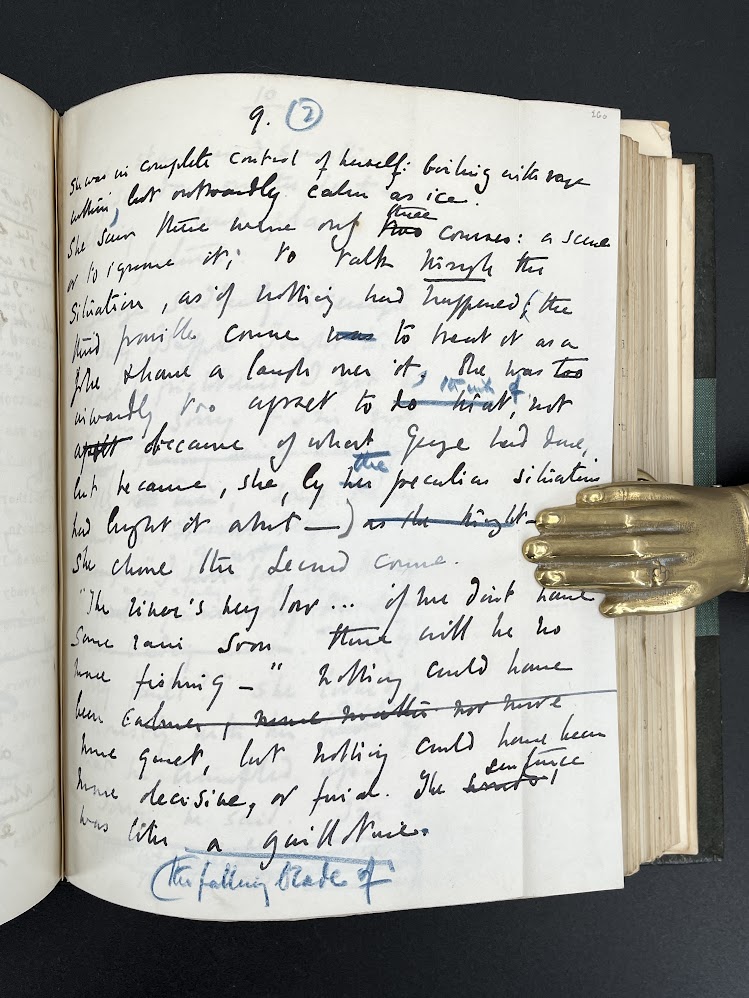 160
9. 2
She was in complete control of herself: boiling with rage
within, but outwardly calm as ice.
She saw there were only two three courses: a scene
or to ignore it; to talk through the
situation, as if nothing had happened; (the
third possible course was to treat it as a
joke & have a laugh over it. She was too
inwardly too upset to do that, not
because of what George had done,
but because, she, by her the peculiar situation
had brought it about —) as she thought —
She chose the second course.
"The river's very low ... if we don't have
some rain soon there will be no
more fishing — " Nothing could have
been calmer, more matter not more
more quiet, but nothing could have been
more decisive, or final. The words sentence
was like a guillotine.
(the falling blade of